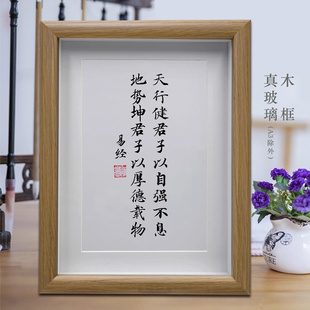 天行健君子以自强不息
地势坤君子以厚德载物
易经
木框
真玻璃
(A3除外)